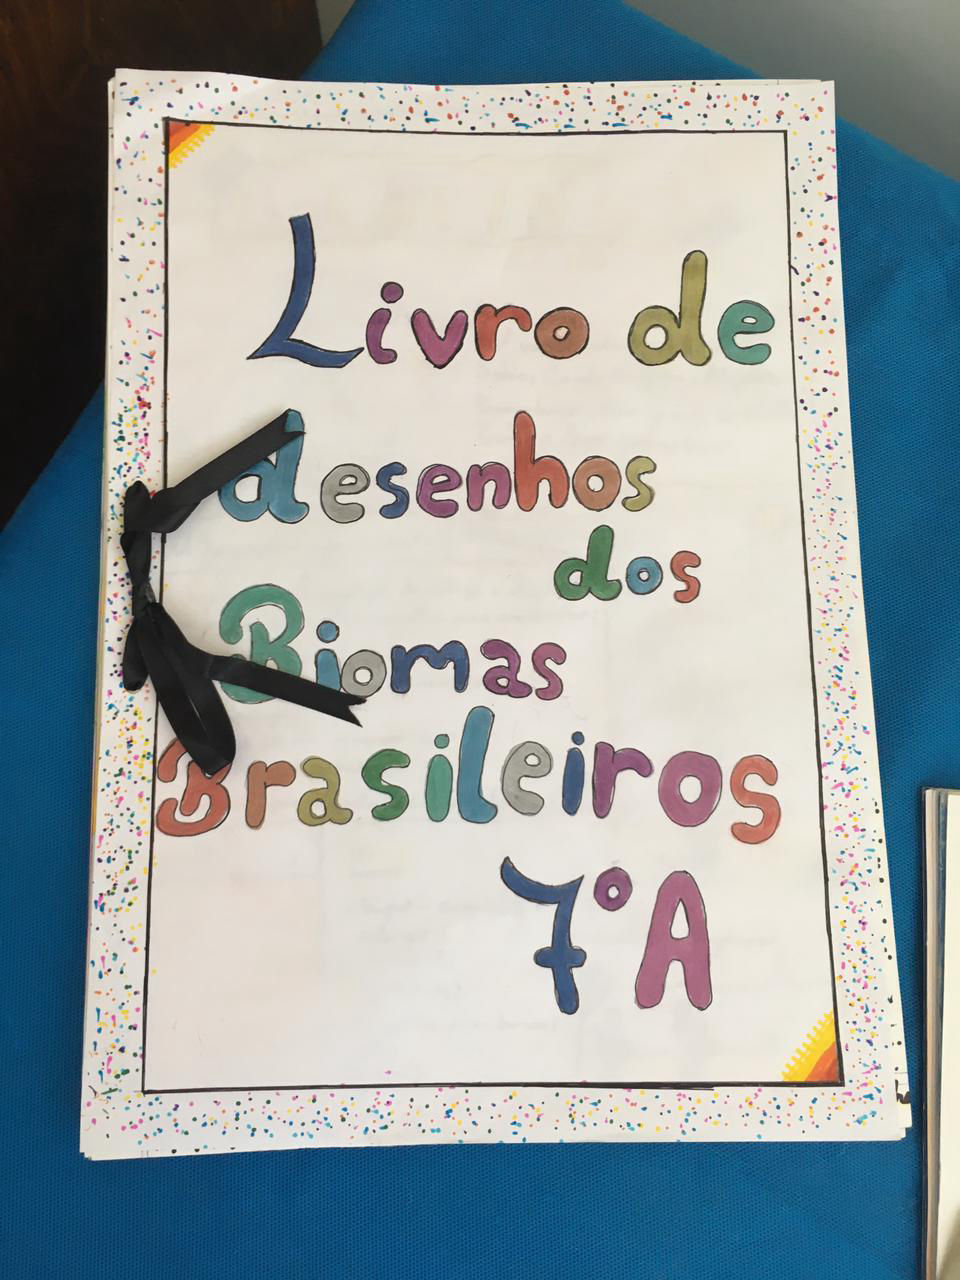 Livro de
desenhos
dos
Biomas
Brasileiros
7º A